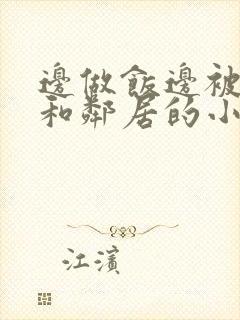 邊做飯邊被
和鄰居的小
江濱